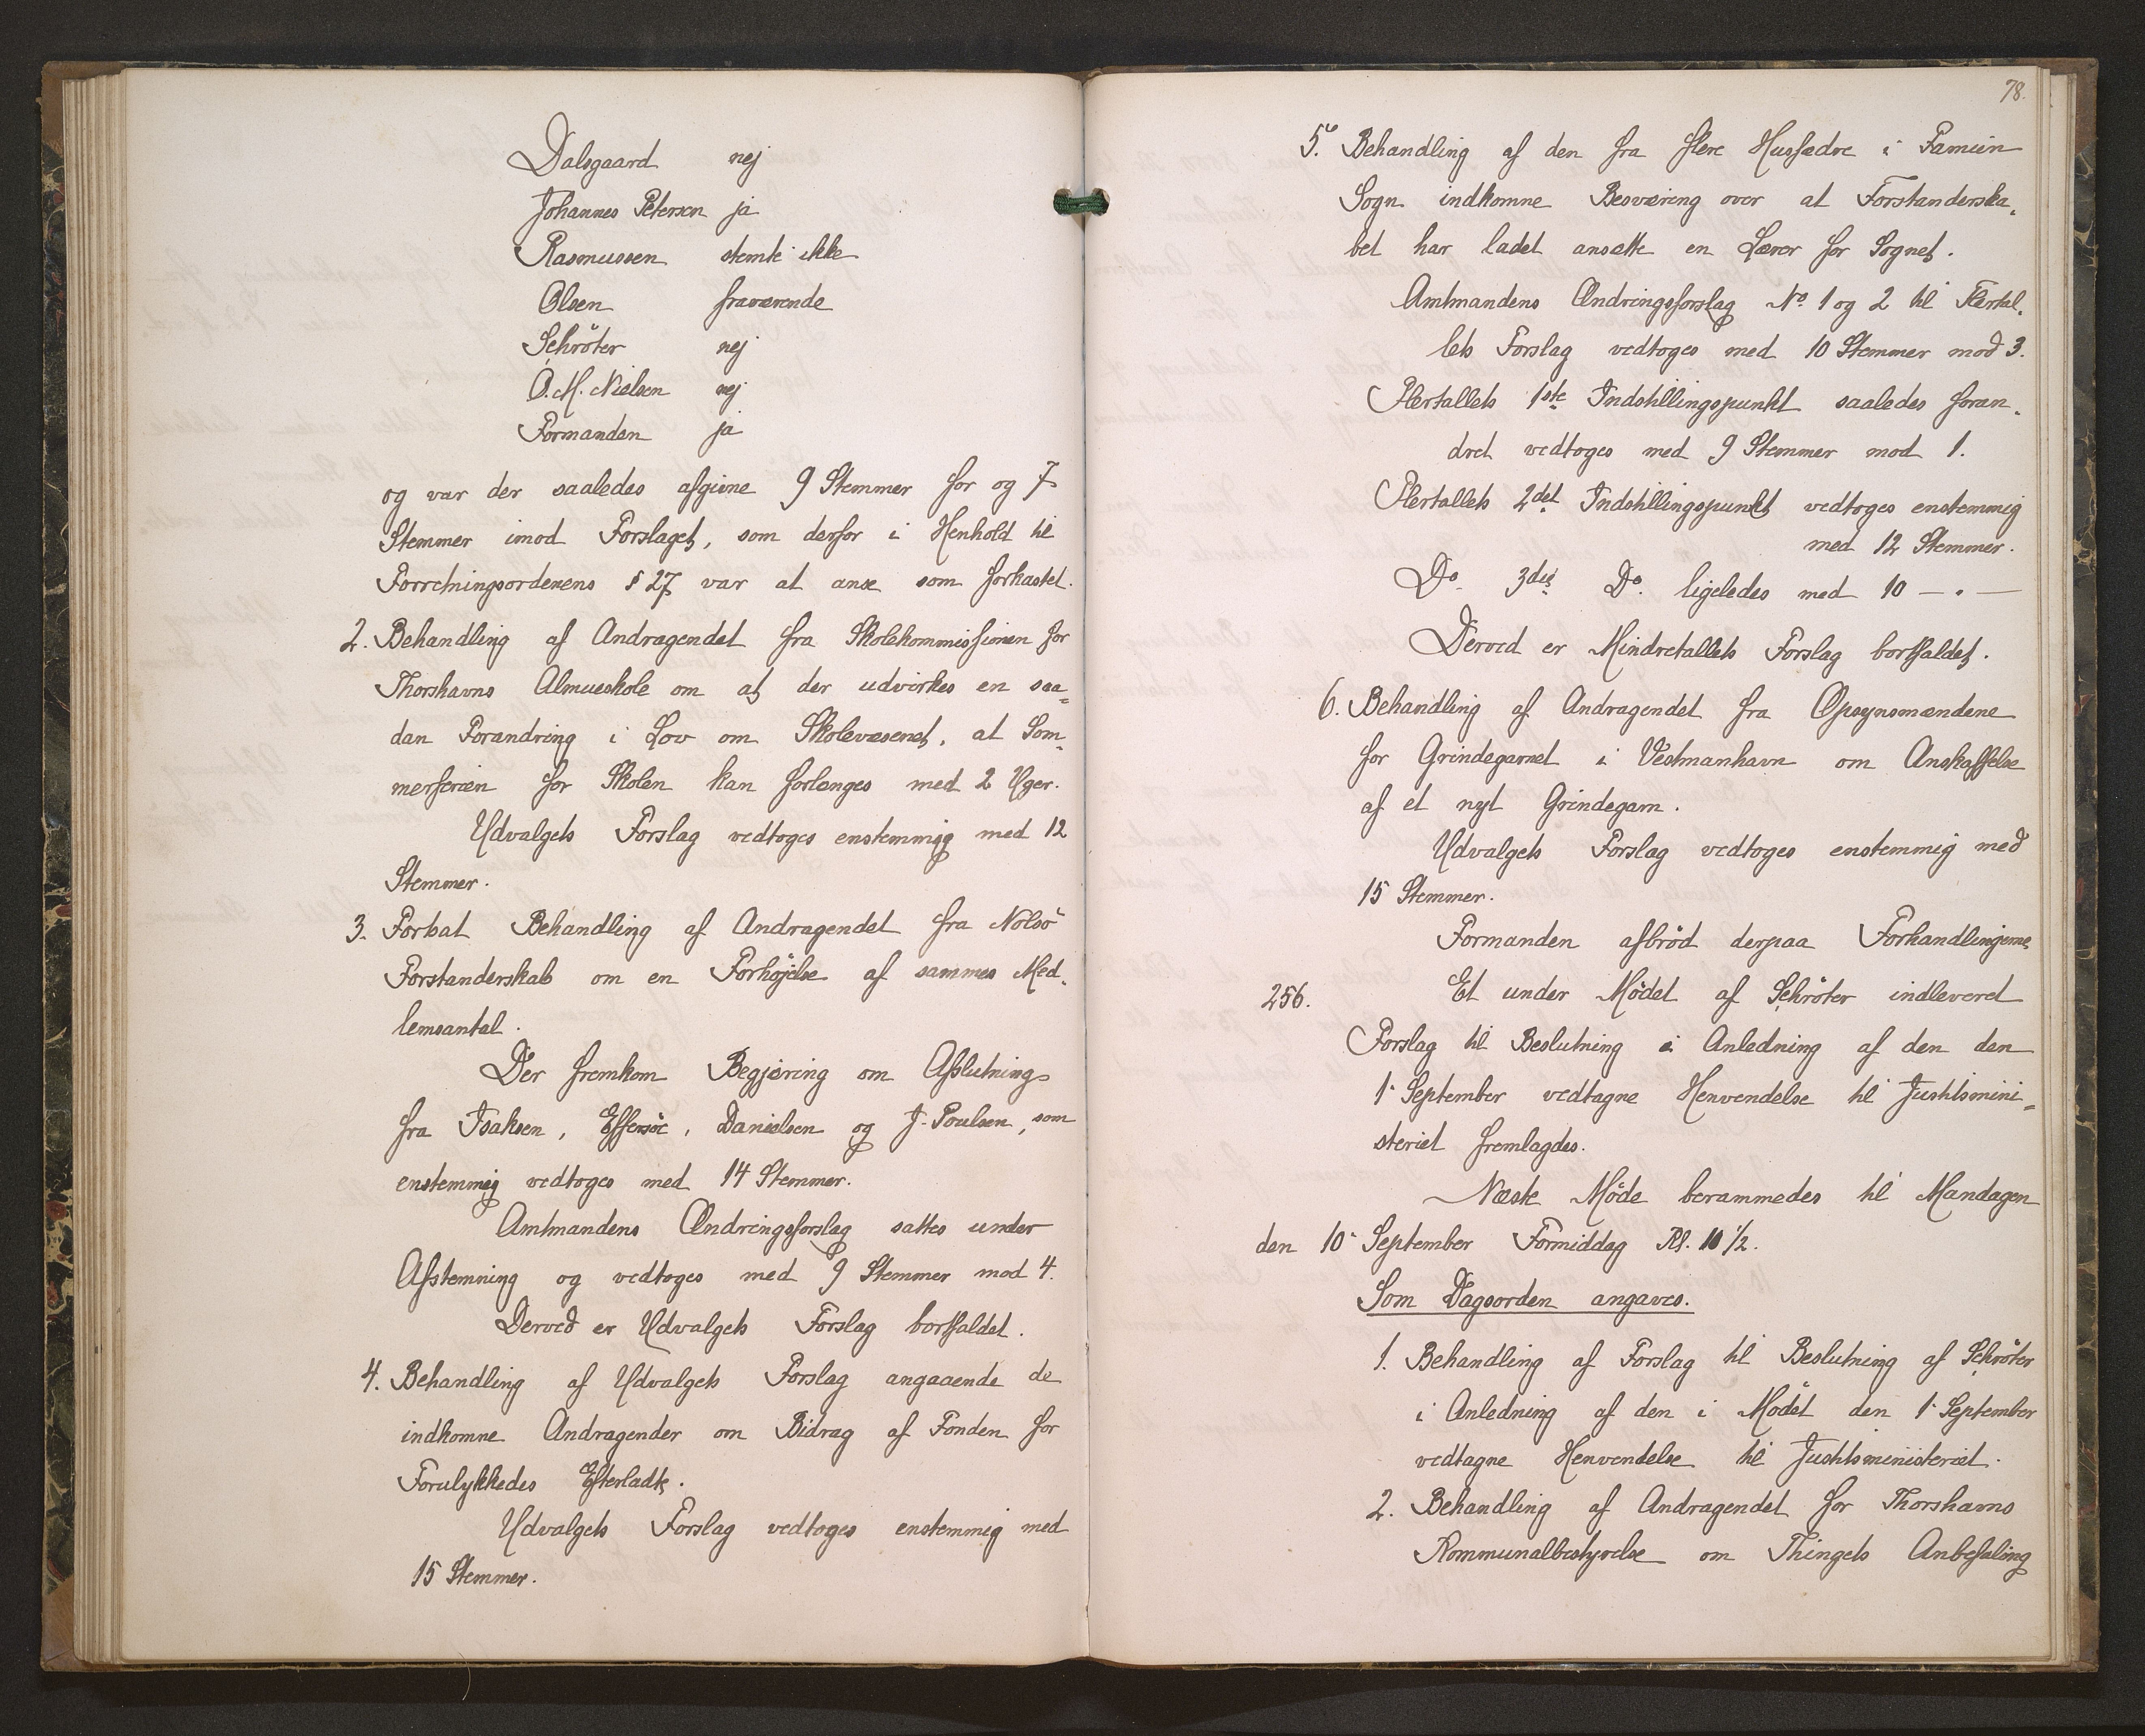 Dalsgaard nej
Johannes Petersen ja
Rasmussen stemte ikke
Olsen fraværende
Schröter nej
O. M. Nielsen nej
Formanden ja
og var der saaledes afgivne 9 Stemmer for og 7
Stemmer imod Forslaget, som derfor i Henhold til
Forretningsordenens § 27 var at anse som forkastet.
2. Behandling af Andragendet fra Skolekommissionen for
Thorshavns Almueskole om at der udvirkes en saa=
dan Forandring i Lov om Skolevæsenet, at Som-
merferien for Skolen kan forlænges med 2 Uger.
Udvalgets Forslag vedtoges enstemmig med 12
Stemmer.
3. Fortsat Behandling af Andragendet fra Nolsö
Forstanderskab om en Forhöjelse af sammes Med-
lemsantal.
Der fremkom Begjæring om Afslutning
fra Isaksen, Effersöe, Danielsen og J. Poulsen, som
enstemmig vedtoges med 14 Stemmer.
Amtmandens Ændringsforslag sattes under
Afstemning og vedtoges med 9 Stemmer mod 4.
Derved er Udvalgets Forslag bortfaldet.
4. Behandling af Udvalgets Forslag angaaende de
indkomne Andragender om Bidrag af Fonden for
Forulykkedes Efterladte.
Udvalgets Forslag vedtoges enstemmig med
15 Stemmer.
78.
5. Behandling af den fra flere Husfædre i Famiin
Sogn indkomne Besværing over at Forstanderska-
bet har ladet ansætte en Lærer for Sognet.
Amtmandens Ændringsforslag No. 1 og 2 til Flertal-
lets Forslag vedtoges med 10 Stemmer mod 3.
Flertallets 1ste Indstillingspunkt saaledes foran-
dret vedtoges med 9 Stemmer mod 1.
Flertallets 2det Indstillingspunkt vedtoges enstemmig
med 12 Stemmer.
Do. 3die Do. ligeledes med 10 — " —
Derved er Mindretallets Forslag bortfaldet.
6. Behandling af Andragendet fra Opsynsmændene
for Grindegarnet i Vestmanhavn om Anskaffelse
af et nyt Grindegarn.
Udvalgets Forslag vedtoges enstemmig med
15 Stemmer.
Formanden afbröd derpaa Forhandlingerne
256. Et under Mödet af Schröter indleveret
Forslag til Beslutning i Anledning af den den
1. September vedtagne Henvendelse til Justitsmini=
steriet fremlagdes.
Næste Möde berammedes til Mandagen
den 10. September Formiddag Kl. 10 1/2.
Som Dagsorden angaves.
1. Behandling af Forslag til Beslutning af Schröter
i Anledning af den i Mödet den 1. September
vedtagne Henvendelse til Justitsministeriet.
2. Behandling af Andragendet for Thorshavns
Kommunalbestyrelse om Thingets Anbefaling